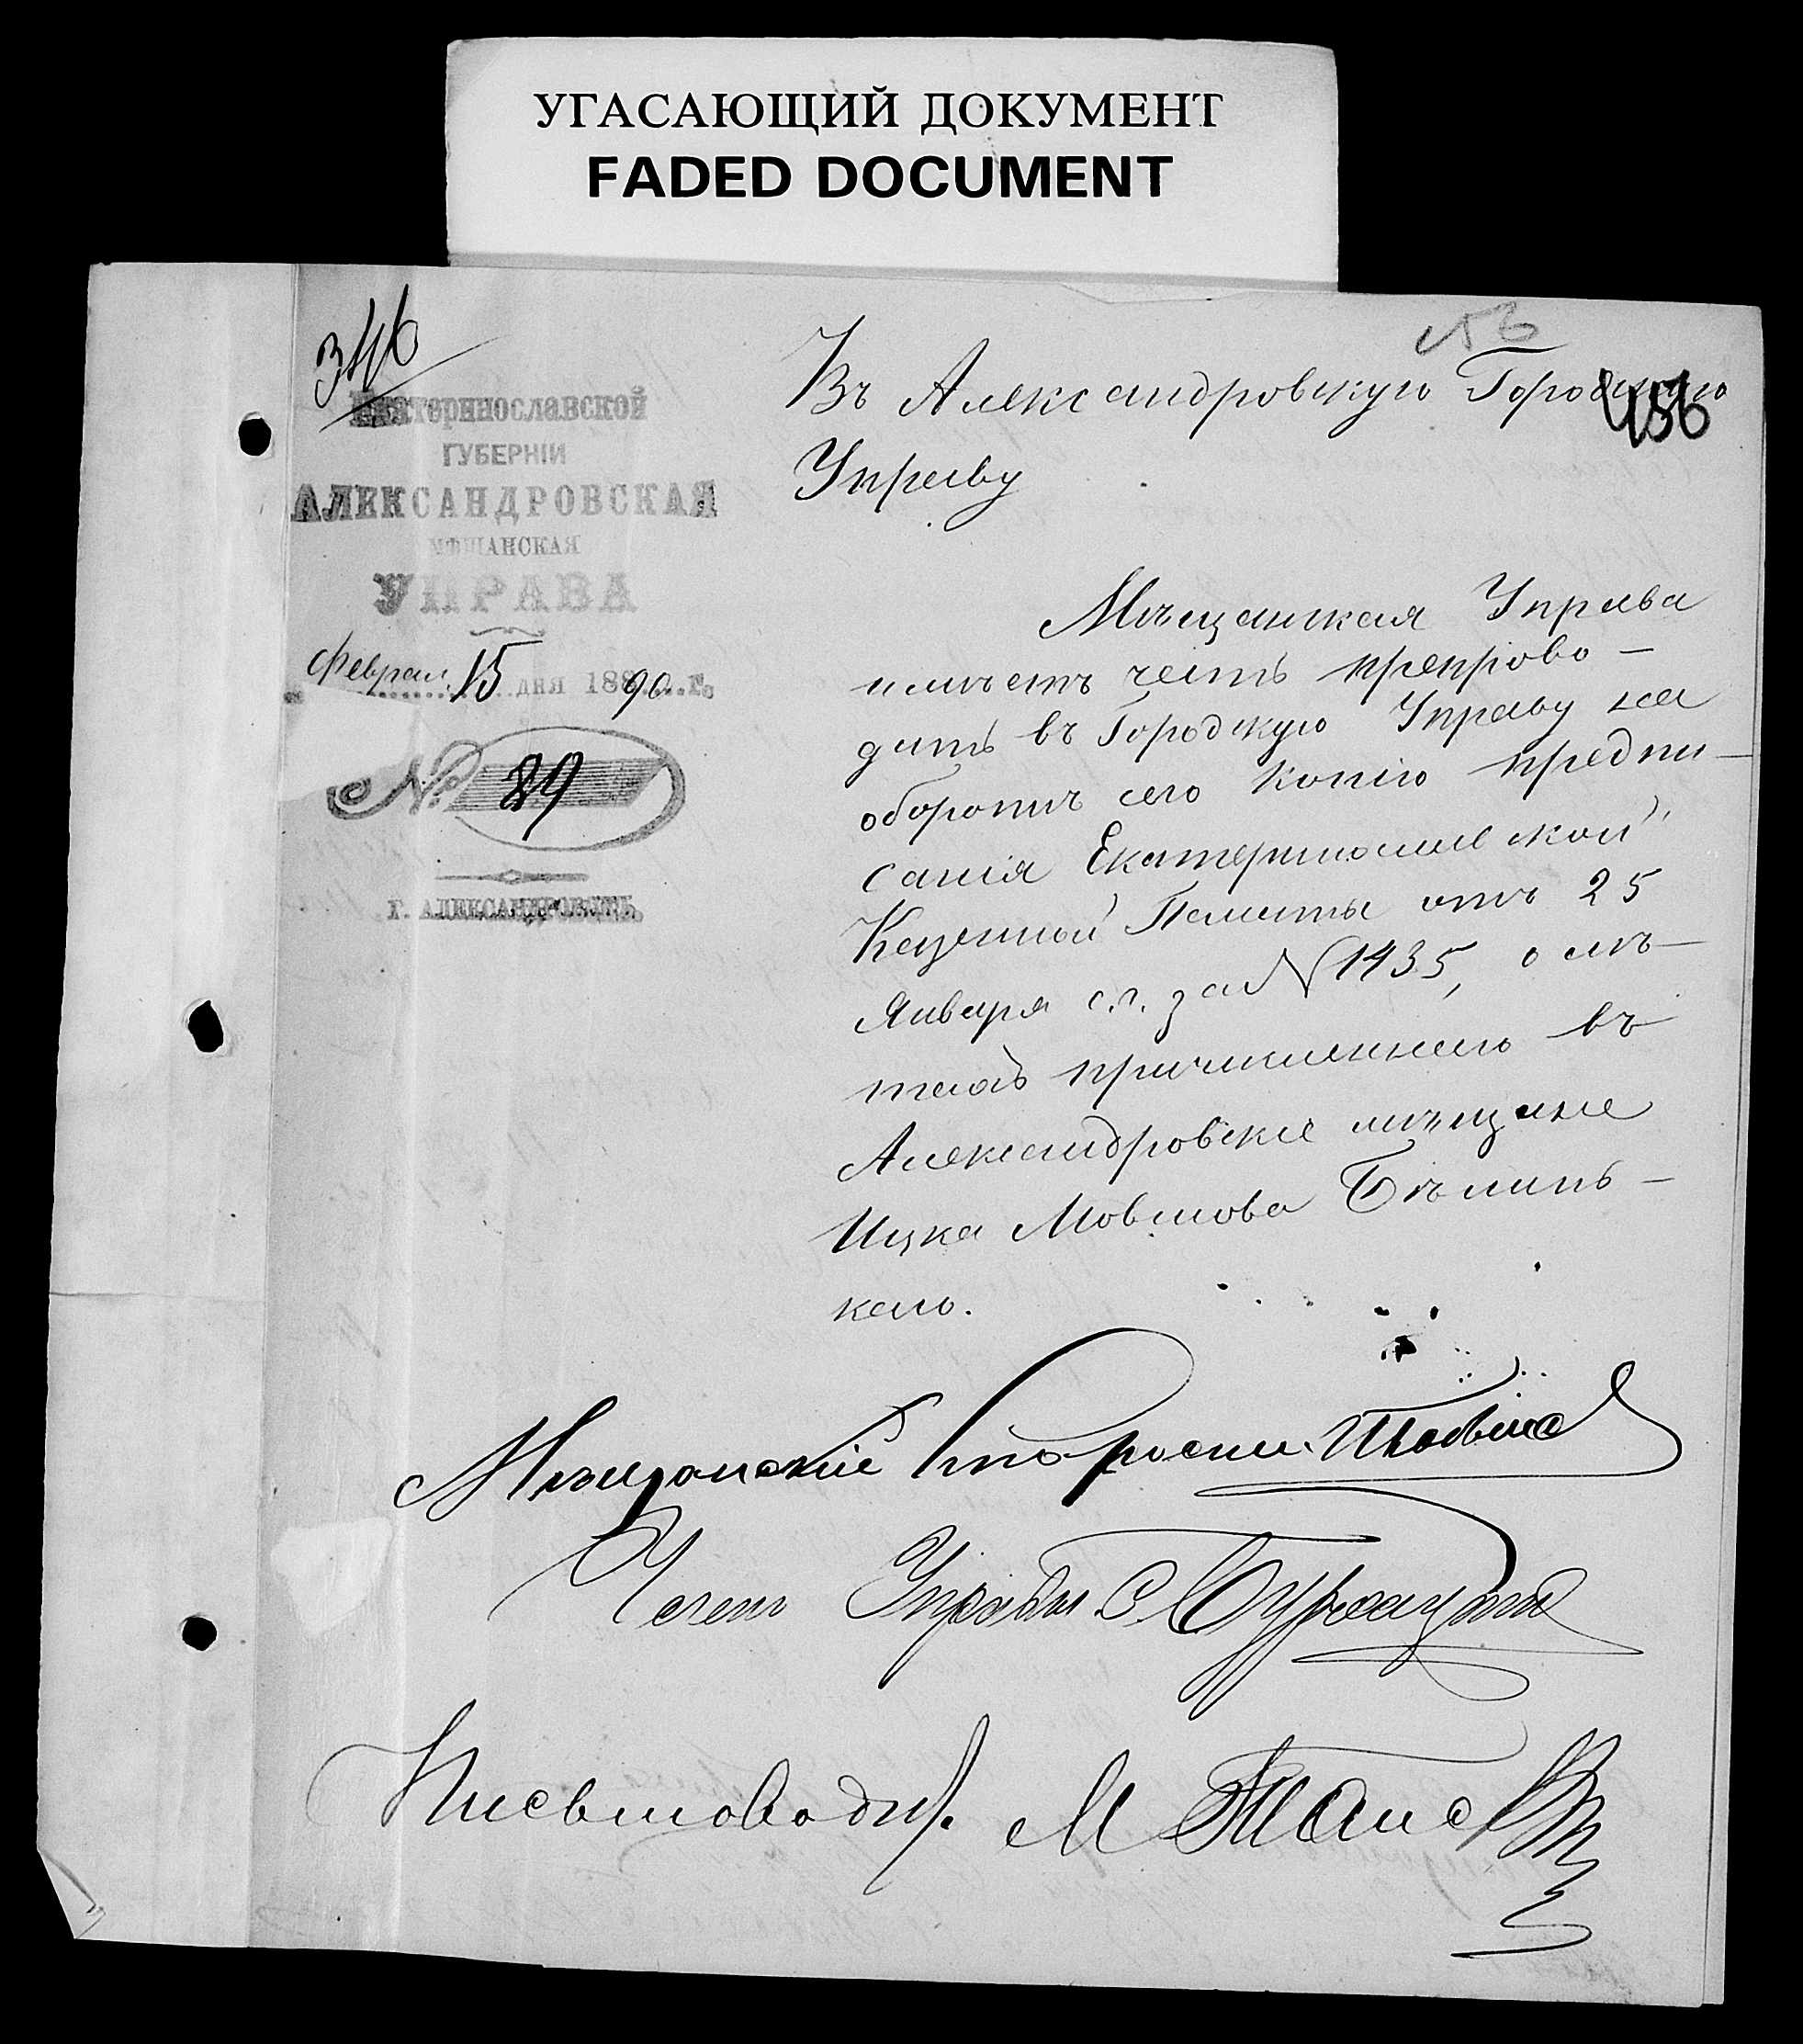 УГАСАЮЩИЙ ДОКУМЕНТ
FADED DOCUMENT
346
Екатеринославской
ГУБЕРНІИ
АЛЕКСАНДРОВСКАЯ
МѢЩАНСКАЯ
УПРАВА
Феврал. 15 дня 18890 г.
№ 89
Г. АЛЕКСАНДРОВСКЪ.
456
Въ Александровскую Городскую
Управу
Мѣщанская Управа
имѣетъ честь препрово-
дить въ Городскую Управу на
оборотѣ сего копію предпи-
санія Екатеринославской
Казенной Палаты отъ 25
Января с.г. за N 1435, о мѣ-
щанъ причисленнаго въ
Александровскіе мѣщане
Ицка Мовшова Бѣлинь-
каго.
Мѣщанскій Старости.
Членъ Управы С.
Письмовод. М